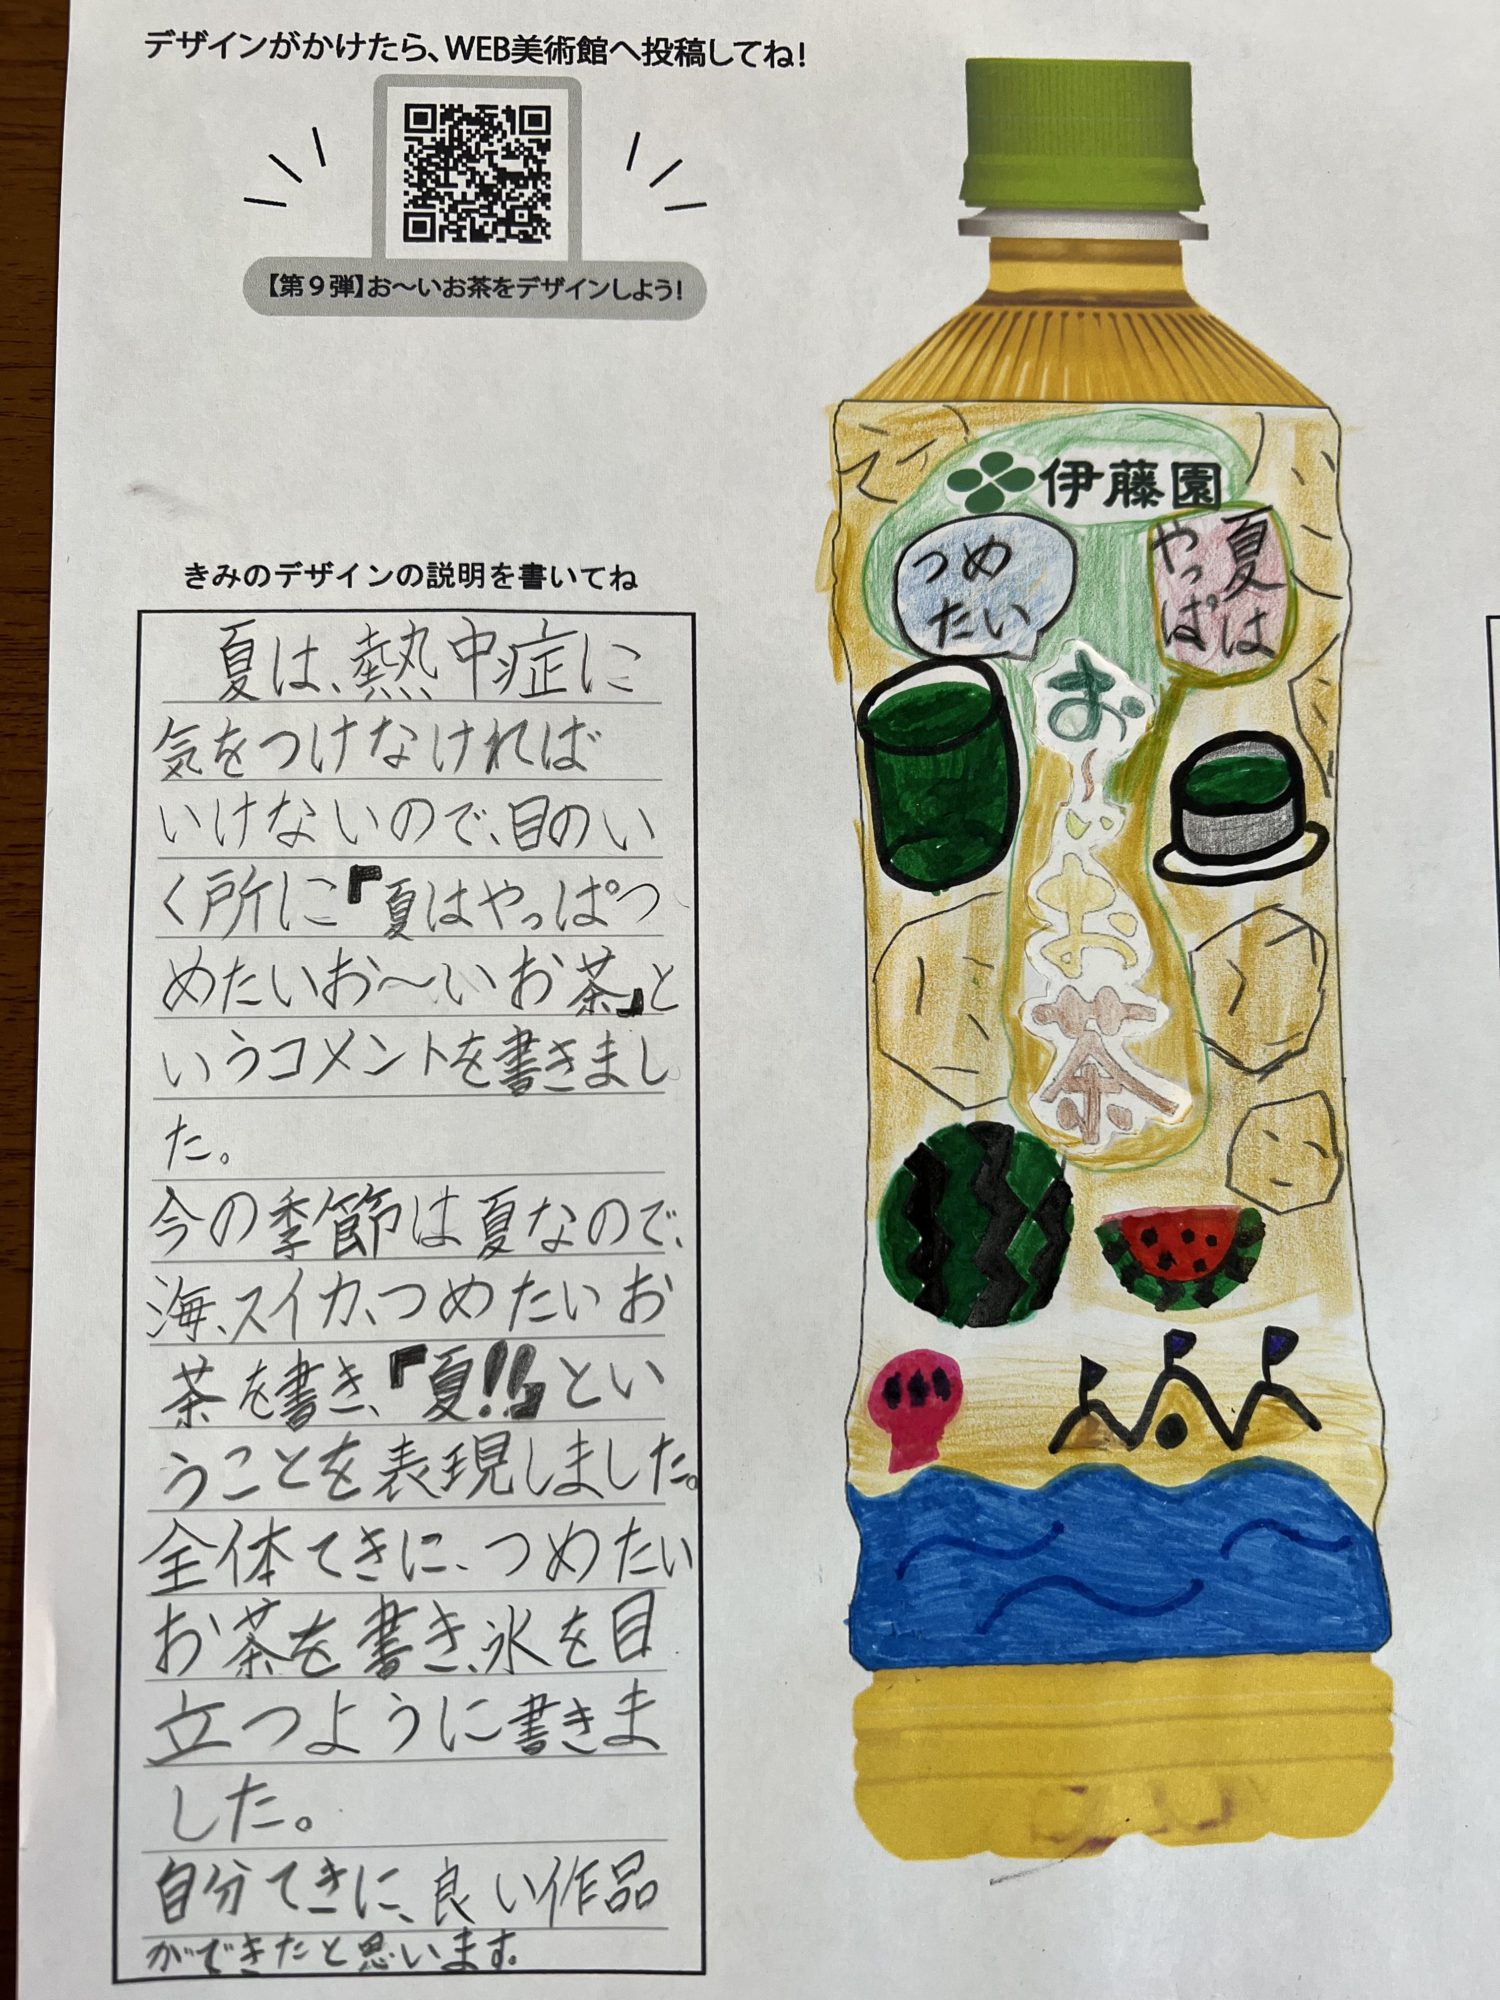 デザインがかけたら、WEB美術館へ投稿してね!
【第9弾】お～いお茶をデザインしよう!
きみのデザインの説明を書いてね
夏は、熱中症に
気をつけなければ
いけないので、目のい
く所に『夏はやっぱつ
めたいお～いお茶』と
いうコメントを書きまし
た。
今の季節は夏なので、
海、スイカ、つめたいお
茶を書き、『夏!!』とい
うことを表現しました。
全体てきに、つめたい
お茶を書き、氷を目
立つように書きま
した。
自分てきに、良い作品
ができたと思います。
伊藤園
夏は
やっぱ
つめ
たい
お～いお茶